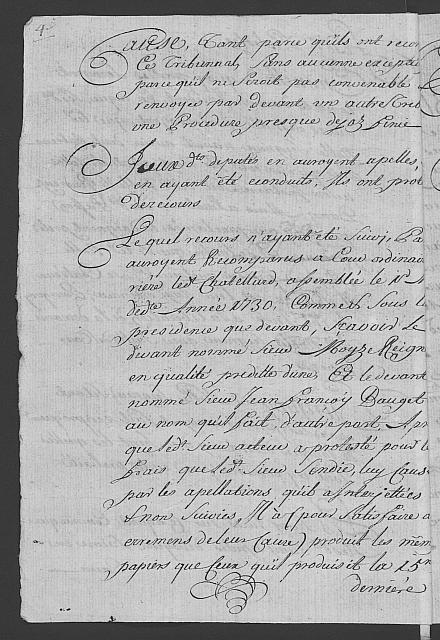 4.
cause, Tant parce qu'ils ont recon
Ce Tribunnal, sans aucunne exceptio
parce qu'il ne seroit pas convenable
renvoyez par devant un autre
une Procedure presque desja finie
Iceux dts deputés en auroyent apellés,
en ayant été econduits, Ils ont prot
de recours
Lequel recours n'ayant été suivi,
auroyent Recomparus a Cour ordinai
rière led. Chatellard, assemblée le
dedte Année 1730. Comme sous l
presidence que devant, scavoir Le
divant nommé sieur Moyze
en qualité predte d'une, Et le devant
nommé sieur Jean François Dauget
au nom qu'il fait, d'autre part,
que ledt. sieur acteur a protesté pour l
frais que ledt. sieur sindic, luy caus
par les apellations qu'il a Interjettées
& non suivies, Il a (pour satisfaire a
erremens de leur Cause) produit les mem
papiers que ceux qu'il produisit la 15e
derniére